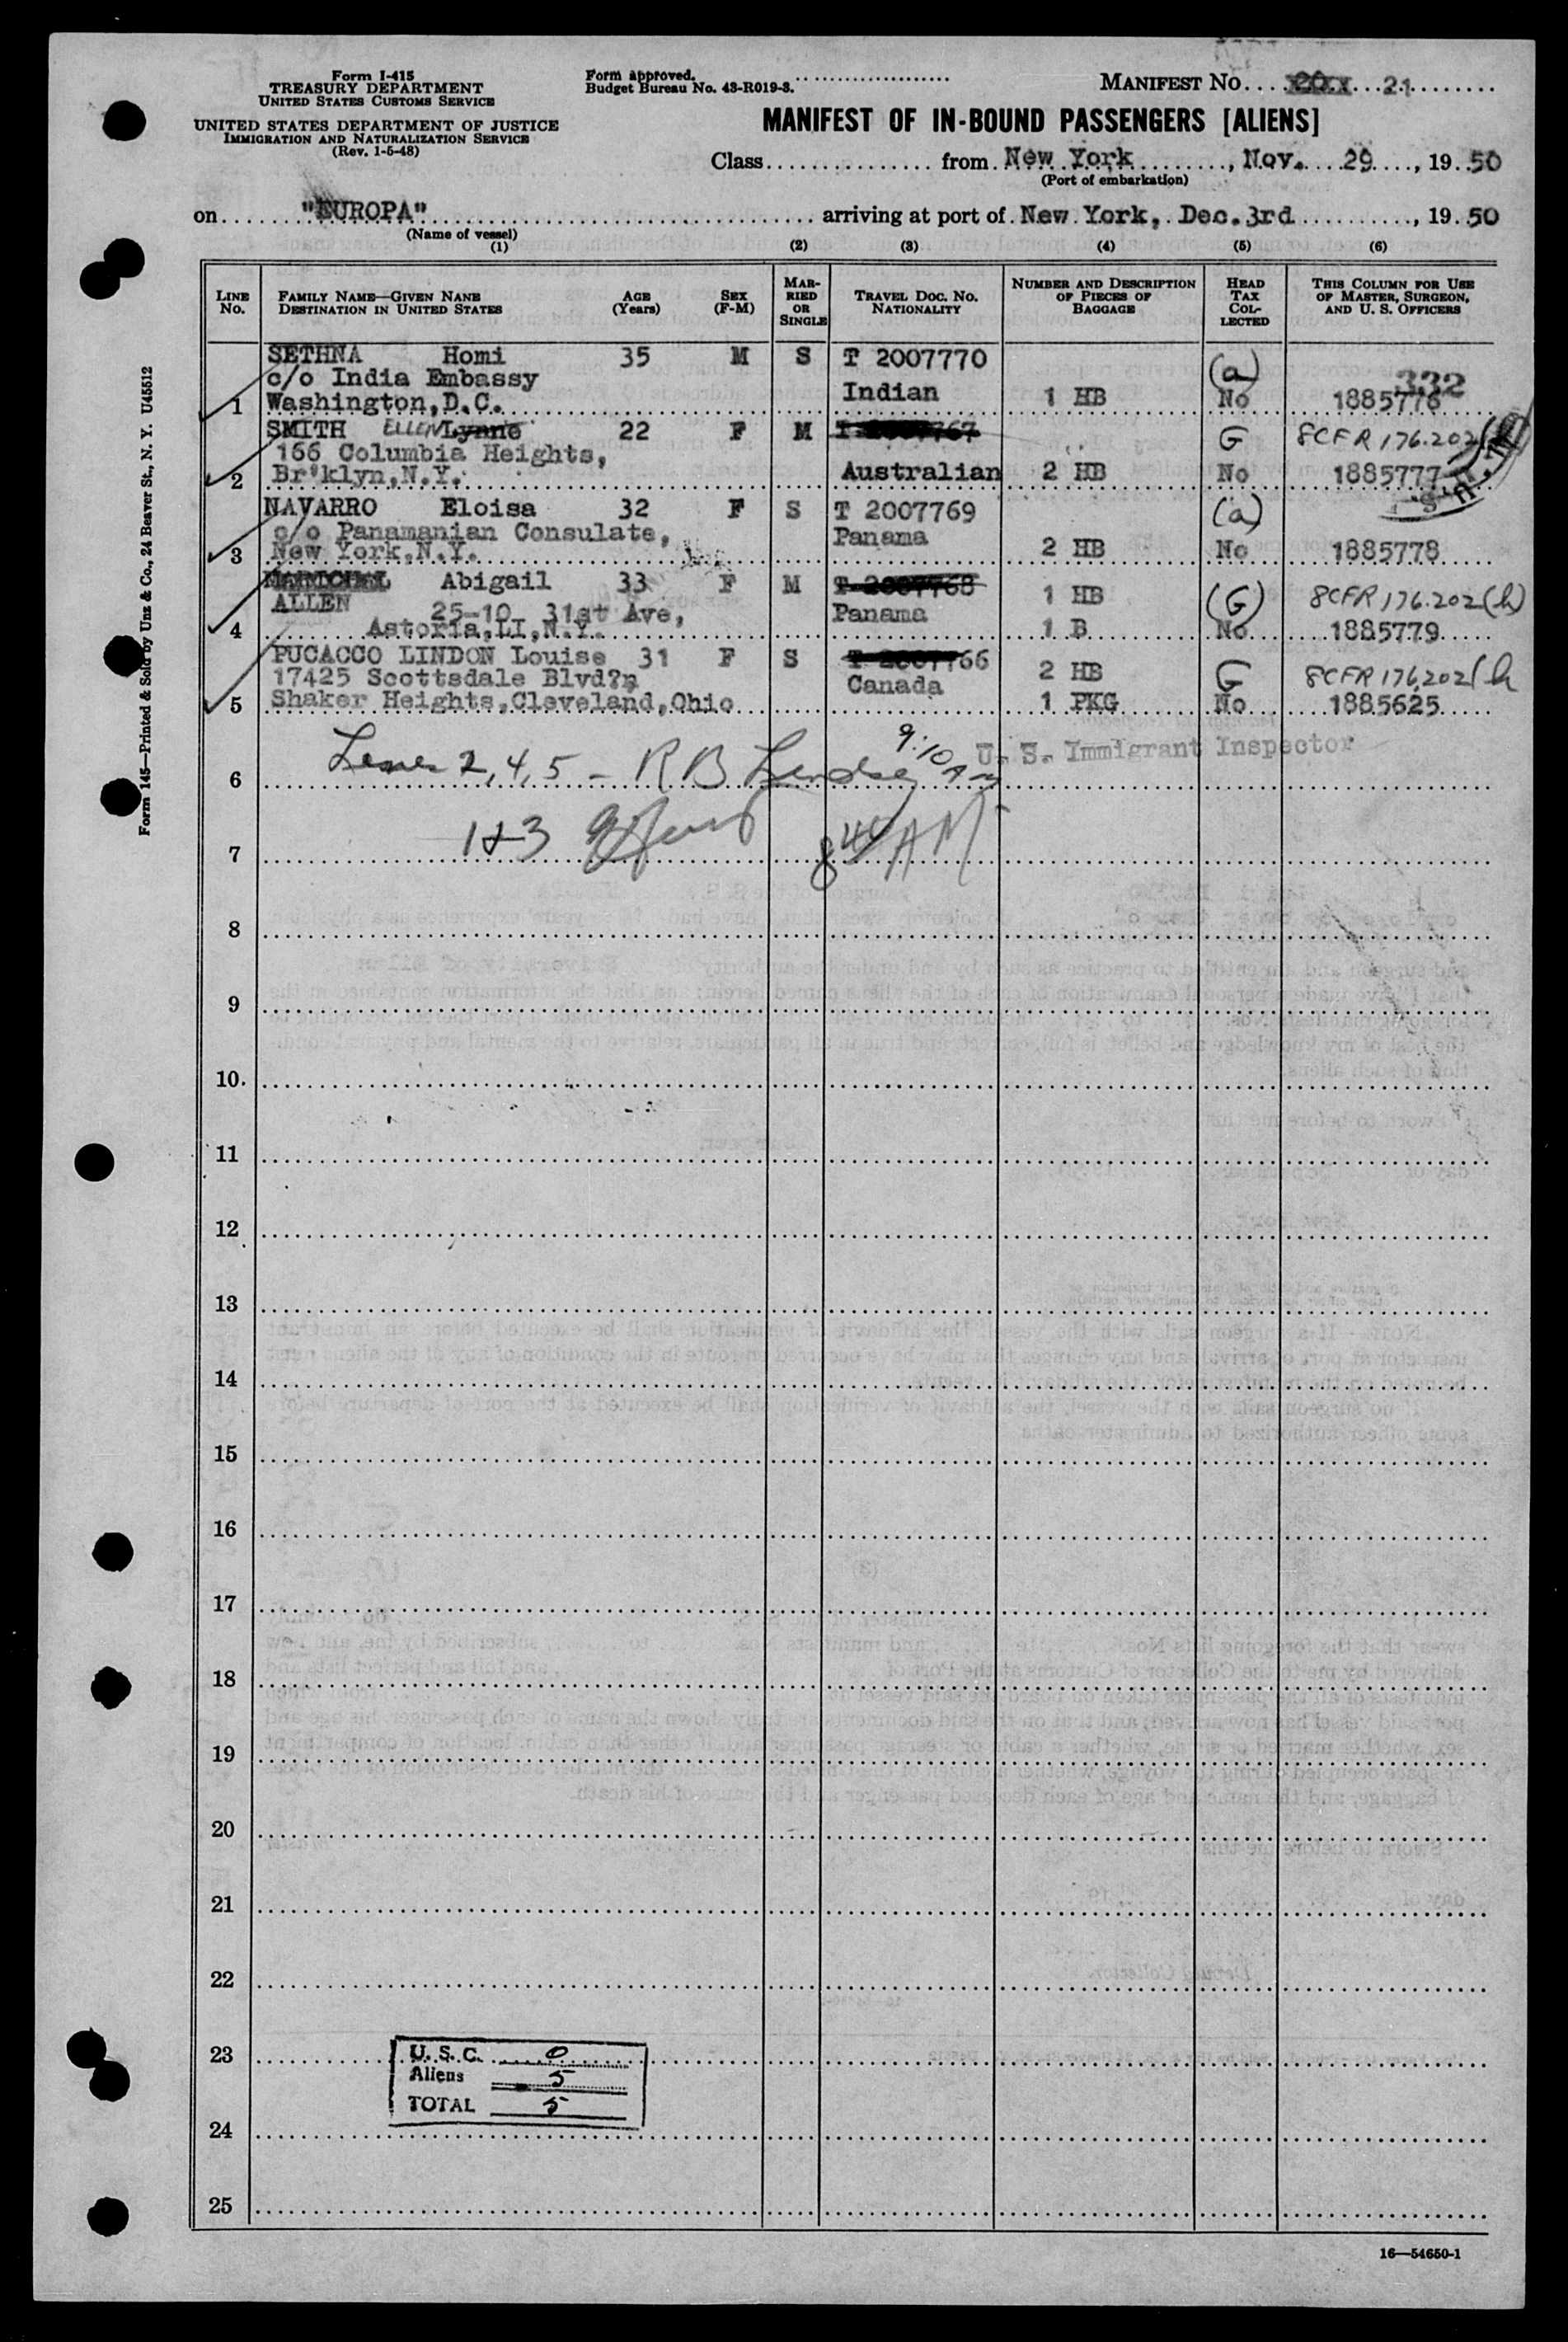 Form I-415
TREASURY DEPARTMENT
UNITED STATES CUSTOMS SERVICE
UNITED STATES DEPARTMENT OF JUSTICE
IMMIGRATION AND NATURALIZATION SERVICE
(Rev. 1-5-48)
Form approved.
Budget Bureau No. 43-R019-3.
MANIFEST No. 21
MANIFEST OF IN-BOUND PASSENGERS [ALIENS]
Class from New York, Nov. 29, 19 50
(Port of embarkation)
on "EUROPA" arriving at port of New York, Dec. 3rd, 19 50
(Name of vessel)
(1) (2) (3) (4) (5) (6)
LINE No. FAMILY NAME—GIVEN NANE DESTINATION IN UNITED STATES AGE (Years) SEX (F-M) MAR-RIED OR SINGLE TRAVEL DOC. No. NATIONALITY NUMBER AND DESCRIPTION OF PIECES OF BAGGAGE HEAD TAX COL-LECTED THIS COLUMN FOR USE OF MASTER, SURGEON, AND U. S. OFFICERS
SETHNA Homi 35 M S T 2007770 (a) 332
c/o India Embassy Indian
1 Washington,D.C. 1 HB No 1885776
SMITH ELLEN Lynne 22 F M G 8CFR 176.202
166 Columbia Heights,
2 Br'klyn,N.Y. Australian 2 HB No 1885777
NAVARRO Eloisa 32 F S T 2007769 (a)
c/o Panamanian Consulate, Panama
3 New York,N.Y. 2 HB No 1885778
Abigail 33 F M T 2007768 1 HB (G) 8CFR 176.202(h)
ALLEN 25-10 31st Ave, Panama
4 Astoria,LI,N.Y. 1 B No 1885779
PUCACCO LINDON Louise 31 F S T 2007766 2 HB G 8CFR 176.202(h
17425 Scottsdale Blvd?n Canada
5 Shaker Heights,Cleveland,Ohio 1 PKG No 1885625
U. S. Immigrant Inspector
6 2, 4, 5 - R B Lindsey 9:10 AM
7 1&3 8 45 AM
8
9
10.
11
12
13
14
15
16
17
18
19
20
21
22
23
24
25
U. S. C. 0
Aliens 5
TOTAL 5
16—54650-1
Form 145—Printed & Sold by Unz & Co., 24 Beaver St., N. Y. U45512